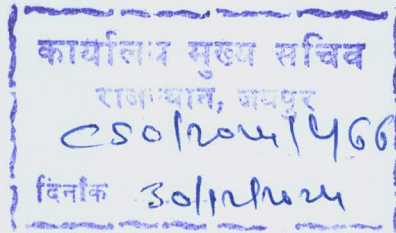 कार्यालय मुख्य सचिव
राजस्थान, जयपुर
CSO/2024/
दिनांक 30/12/2024